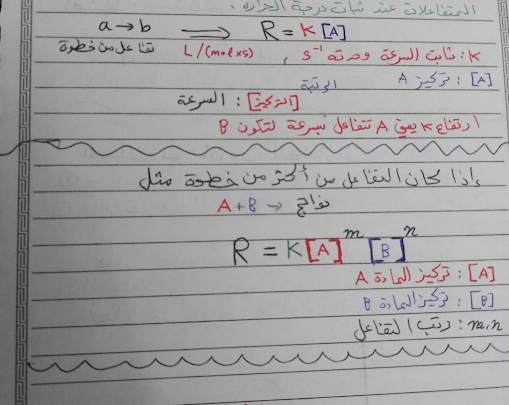 المتفاعلات عند ثبات درجة الحرارة.
a → b ⟹ R = K [A]
تفاعل من خطوة
K: ثابت السرعة وحدته s⁻¹ , L/(mol×s)
[A] : تركيز A الرتبة
[التركيز] : السرعة
ارتفاع K يعني A تتفاعل بسرعة لتكون B
إذا كان التفاعل من أكثر من خطوة مثل
A + B → نواتج
R = K [A]ᵐ [B]ⁿ
[A] : تركيز المادة A
[B] : تركيز المادة B
m,n : رتب التفاعل